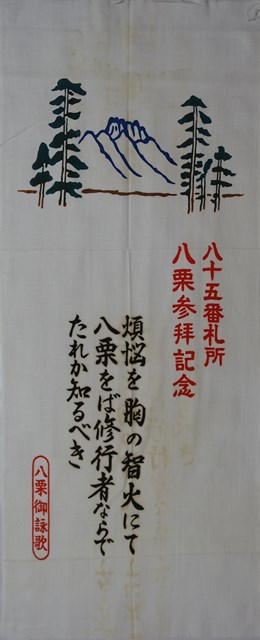 八十五番札所
八栗参拝記念
煩悩を胸の智火にて
八栗をば修行者ならで
たれか知るべき
八栗御詠歌